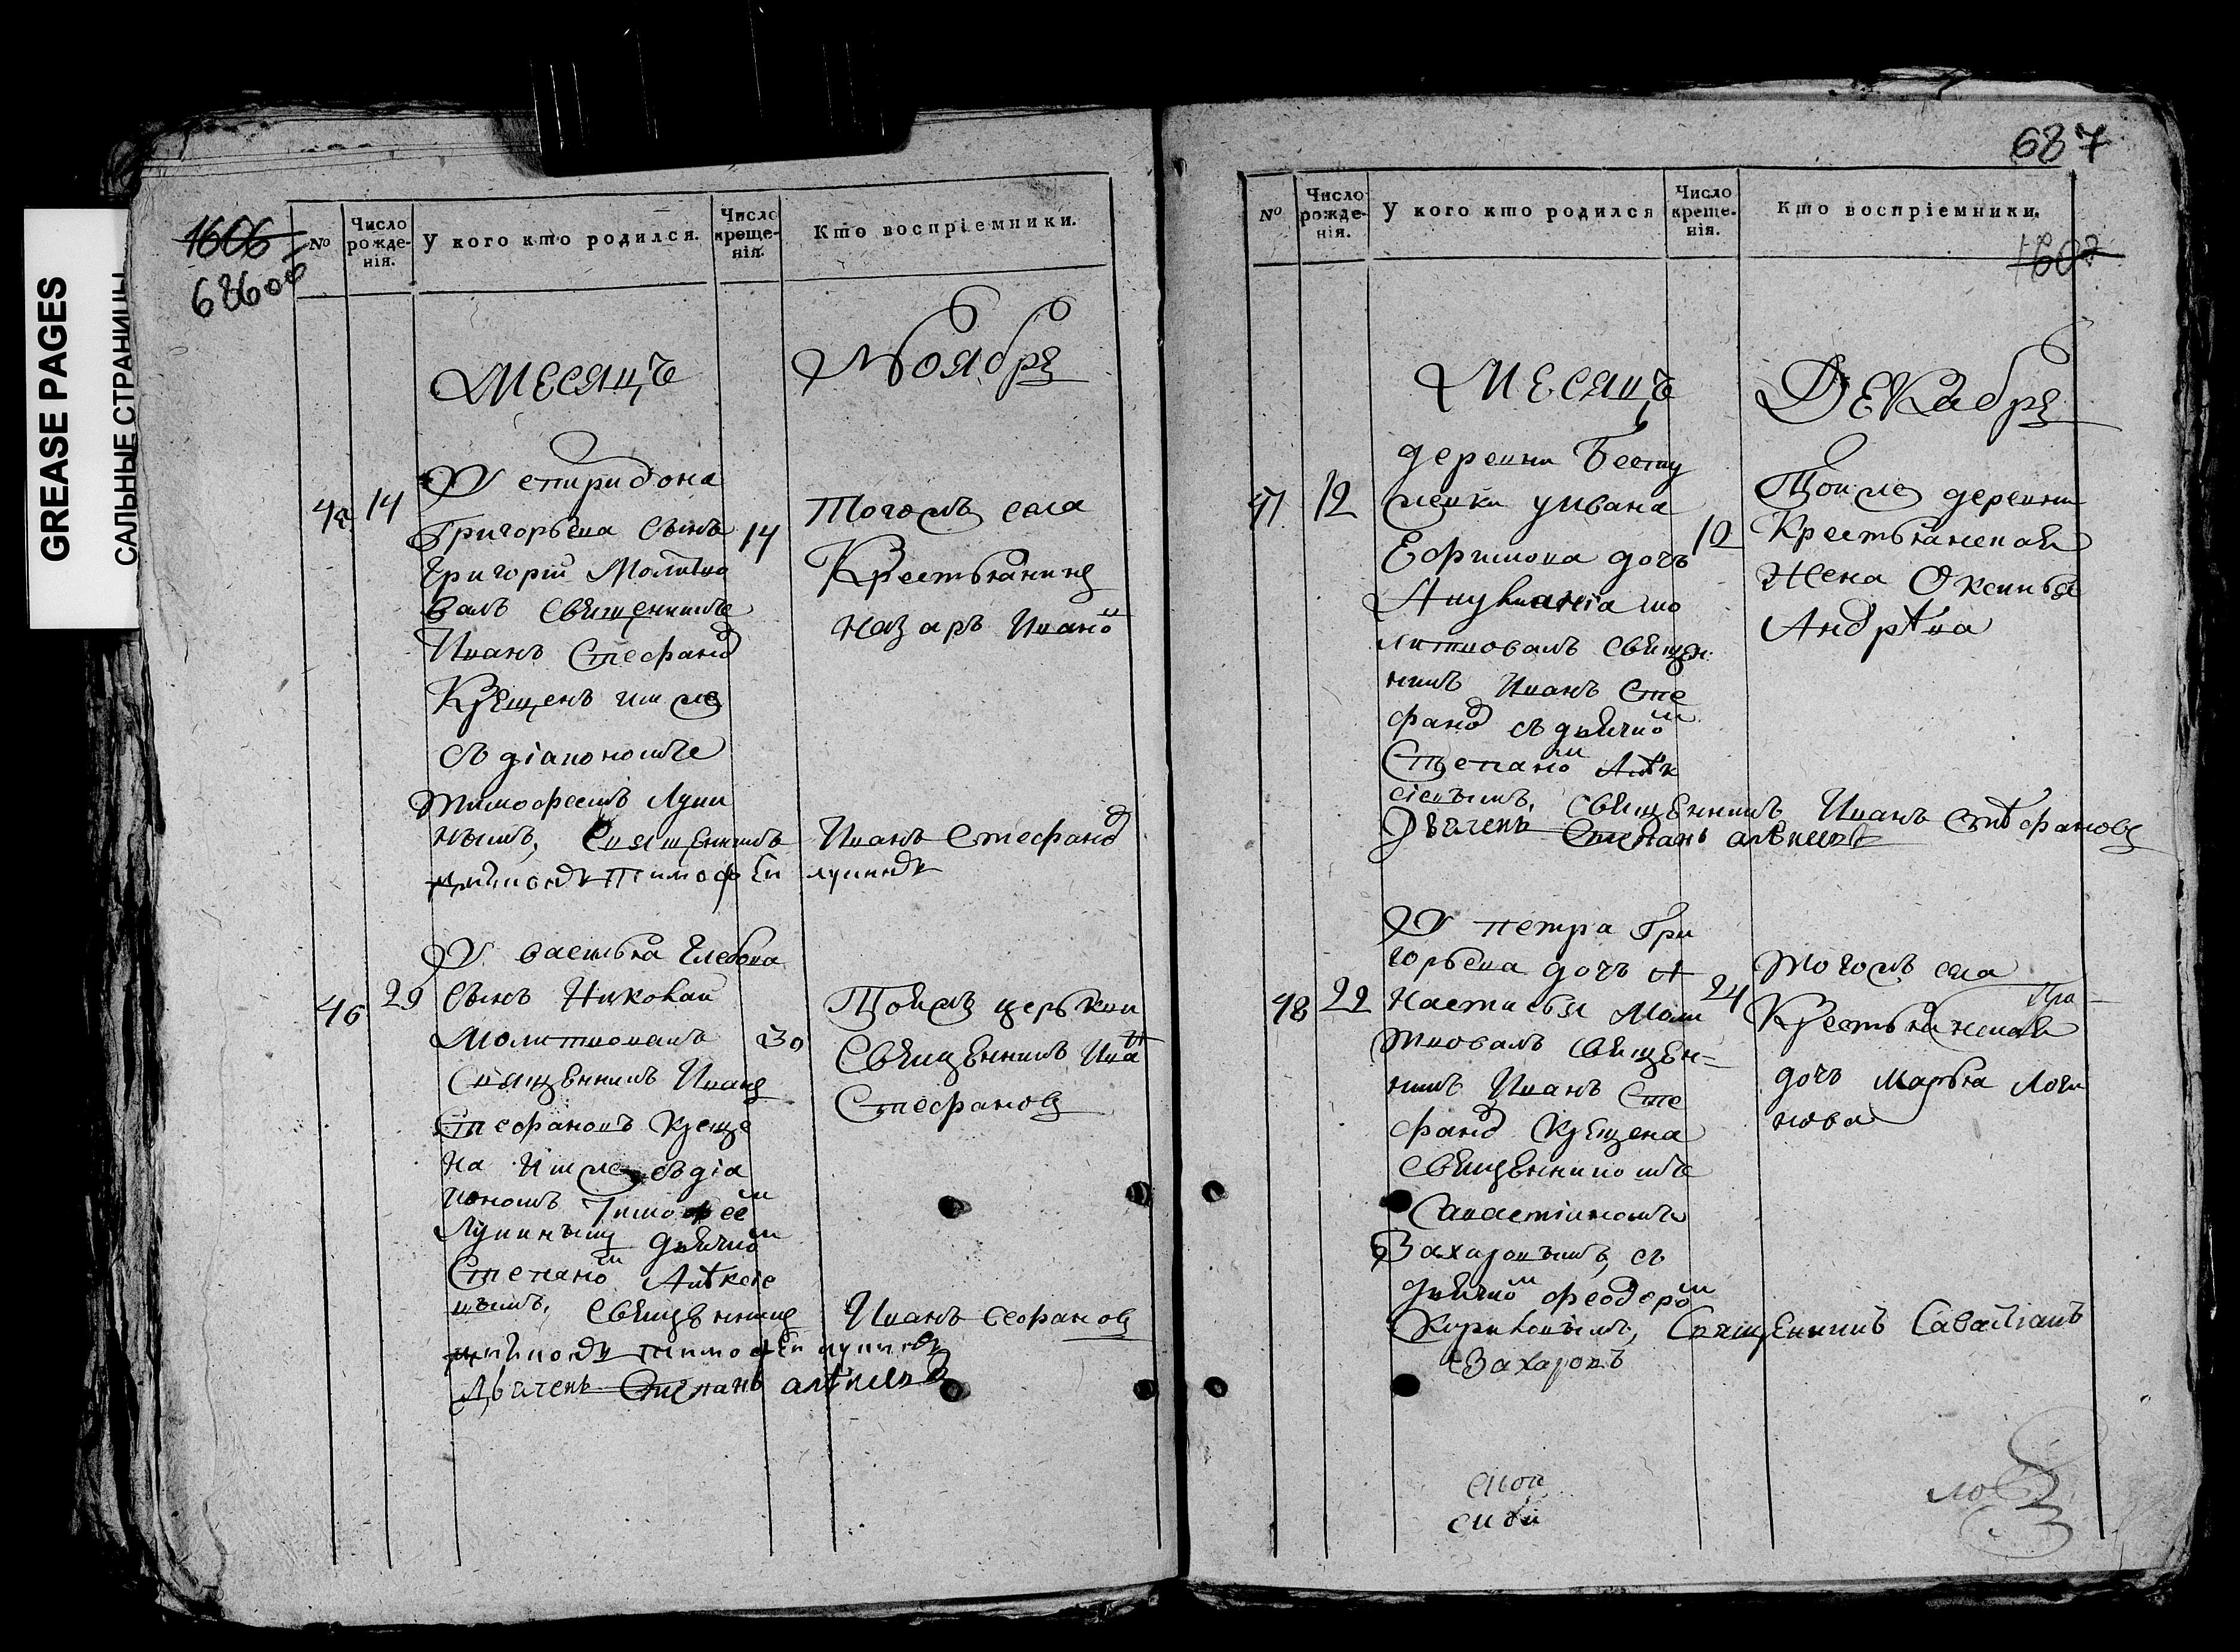 GREASE PAGES
САЛЬНЫЕ СТРАНИЦЫ
1606
686об
№ Число рожденія. У кого кто родился. Число крещенія. Кто воспріемники.
Месяцъ Ноябрь
У спиридона
14 Григорьева Сынъ 14
Григорій Молитво
валъ Священникъ
Иванъ Стефанов
Крещенъ имже
съ діакономъ
тимофеемъ Лупи
нымъ, Священникъ Иванъ Стефанов
тимофей лупинов
Тогожъ села
Крестьянинъ
Назаръ Иванов
У василья Глебова
46 29 Сынъ Николай
Молитвовалъ 30
Священникъ Иванъ
Стефановъ Креще
на Имже съ діа
кономъ Тимофеем
Лупинымъ дьячком
Степаном Алѣксіе
вымъ, Священникъ Иванъ Сефановъ
тимофей лупинов
Дьячекъ Степанъ алѣкиев
Тойжъ церькви
Священникъ Ива
Стефановъ
687
№ Число рожденія. У кого кто родился Число крещенія. Кто воспріемники.
1607
Месяцъ Декабрь
деревни Бесту
47 12 жевки уивана
Ефимова дочь 12
мо
литвовалъ священ
никъ Иванъ Сте
фанов съ дьячком
Степаном Алѣк
сіевымъ, Священникъ Иванъ Стѣфановъ
Дьячекъ Степанъ алѣкиев
Тойже деревни
Крестьянская
Жена Оксинья
Андрѣва
У петра Гри
горьева дочь А
48 22 Настасья Моли 24
твовалъ священ=
никъ Иванъ Сте
фанов Крещена
священникомъ
Савастіяномъ
Захаровымъ, съ
дьячком феодором
Кириловымъ, Священникъ Саватіанъ
Захаровъ
Тогожъ села
Крестьянская
дочь Марья Логи
нова
ло